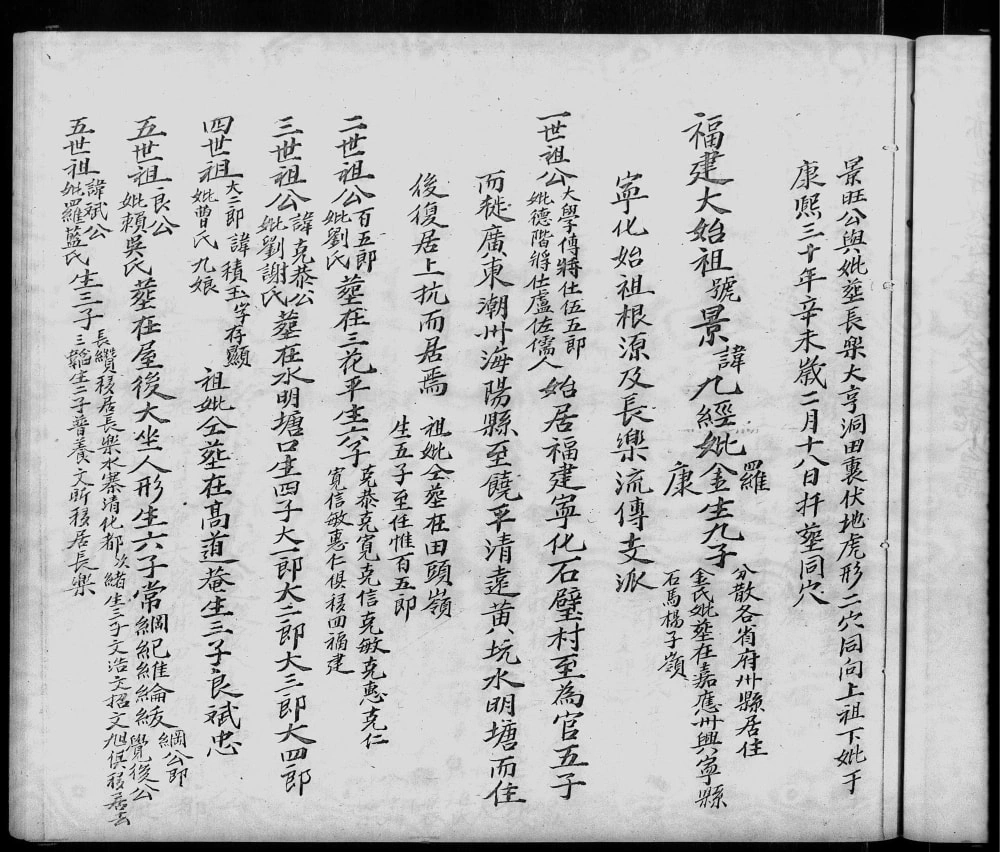 景旺公與妣塟長樂大亨洞田裏伏地虎形二穴同向上祖下妣于
康熙三十年辛未歲二月十八日扦塟同穴
福建大始祖號景諱九經妣金羅康生九子
分散各省府州縣居住
金氏妣塟在嘉應州興寧縣
石馬楊子嶺
寧化始祖根源及長樂流傳支派
一世祖公大學傳將仕伍五郎
妣德階將仕盧佐儒人
始居福建寧化石壁村至為官五子
而徙廣東潮州海陽縣至饒平清遠黃坑水明塘而住
後復居上抗而居焉
祖妣仝塟在田頭嶺
生五子至任惟百五郎
二世祖公百五郎
妣劉氏
塟在三花平生六子
克恭克寬克信克敏克惠克仁
寬信敏惠仁俱移回福建
三世祖公諱克恭公
妣劉謝氏
塟在水明塘口生四子大一郎大二郎大三郎大四郎
四世祖大二郎諱積玉字存顯
妣曹氏九娘
祖妣仝塟在高道菴生三子良斌忠
五世祖良公
妣賴吳氏
塟在屋後大坐人形生六子常綱紀維綸紱
綱公即
覺後公
五世祖諱斌公
妣羅藍氏
生三子
長纘移居長樂水寨清化都
次緒生三子文浩文招文旭俱移居去
三韜生二子普養文昕移居長樂